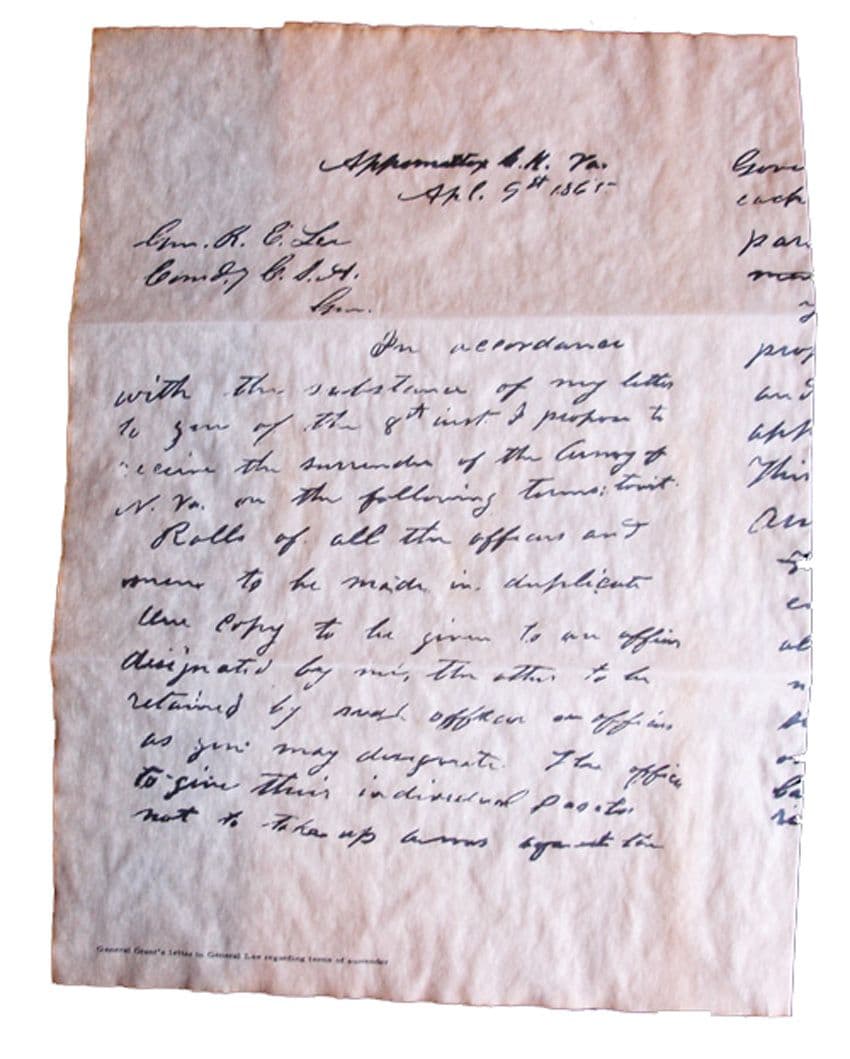 Appomattox C. H. Va.
Apl. 9th 1865
Gen. R. E. Lee
Comd.g C. S. A.
Gen.
In accordance
with the substance of my letter
to you of the 8th inst. I propose to
receive the surrender of the Army of
N. Va. on the following terms: towit:
Rolls of all the officers and
men to be made in duplicate
One copy to be given to an officer
designated by me, the other to be
retained by such officer or officers
as you may designate. The officers
to give their individual paroles
not to take up arms against the
Gove
each
par
prop
and
app
This
Arm
General Grant's letter to General Lee regarding terms of surrender